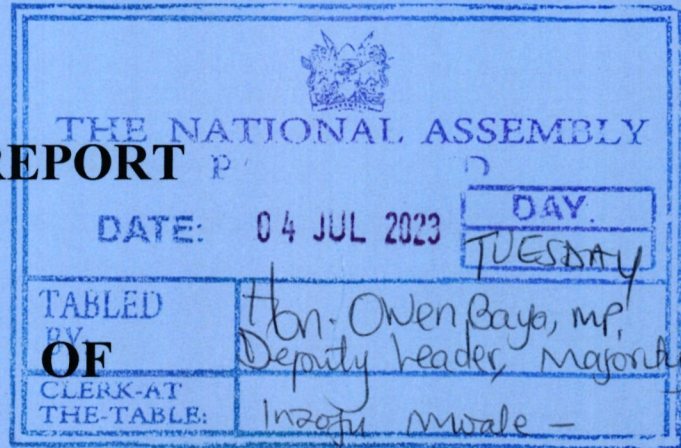 THE NATIONAL ASSEMBLY
REPORT
DATE: 04 JUL 2023 DAY.
TUESDAY
TABLED
BY
Hon. Owen Baya, MP,
Deputy Leader, Majority
OF
CLERK-AT
THE-TABLE:
Inzofu Mwale -